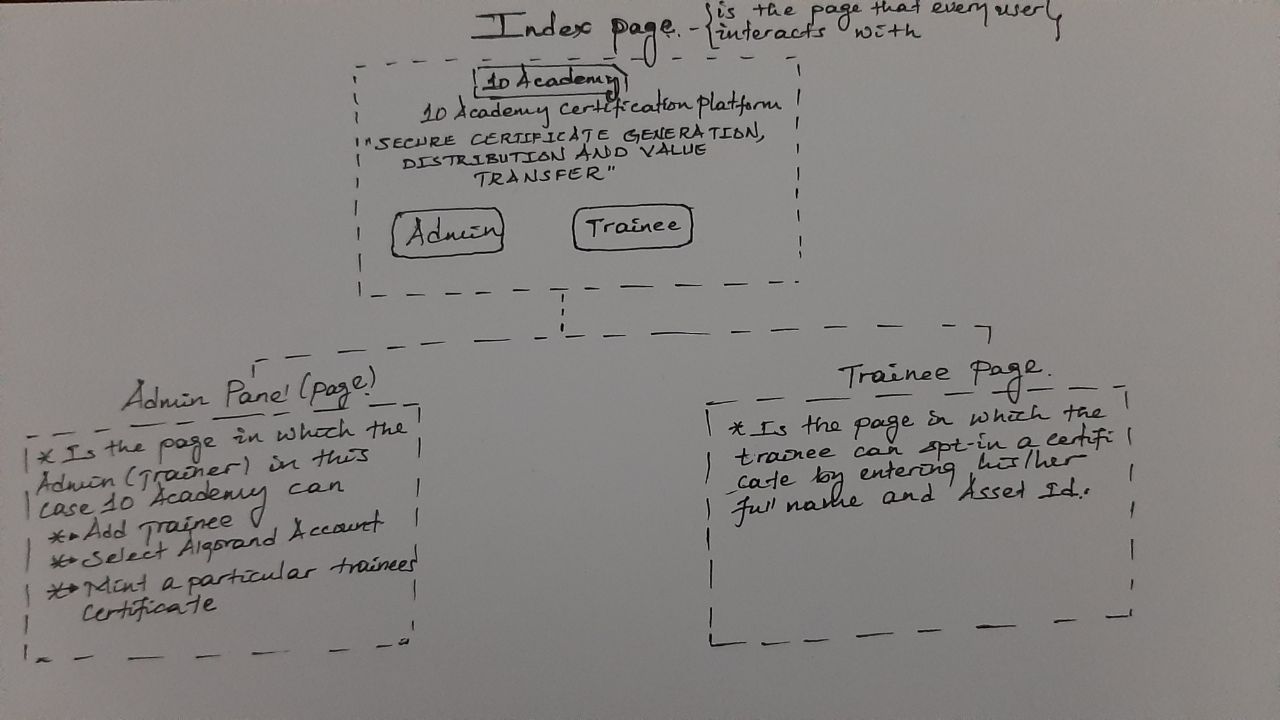 Index page. - {is the page that every user
interacts with}
10 Academy
10 Academy Certification Platform
"SECURE CERTIFICATE GENERATION,
DISTRIBUTION AND VALUE
TRANSFER"
Admin
Trainee
Admin Panel (page)
* Is the page in which the
Admin (Trainer) in this
case 10 Academy can
*→ Add Trainee
*→ Select Algorand Account
*→ Mint a particular trainees
certificate
Trainee Page.
* Is the page in which the
trainee can opt-in a certifi
cate by entering his/her
full name and Asset Id.